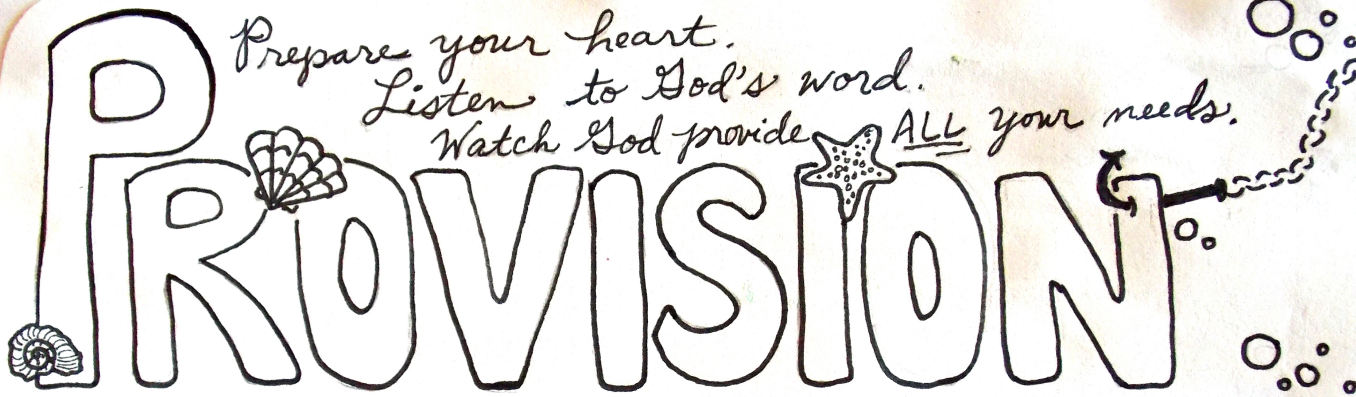 Prepare your heart.
Listen to God's word.
Watch God provide ALL your needs.
PROVISION